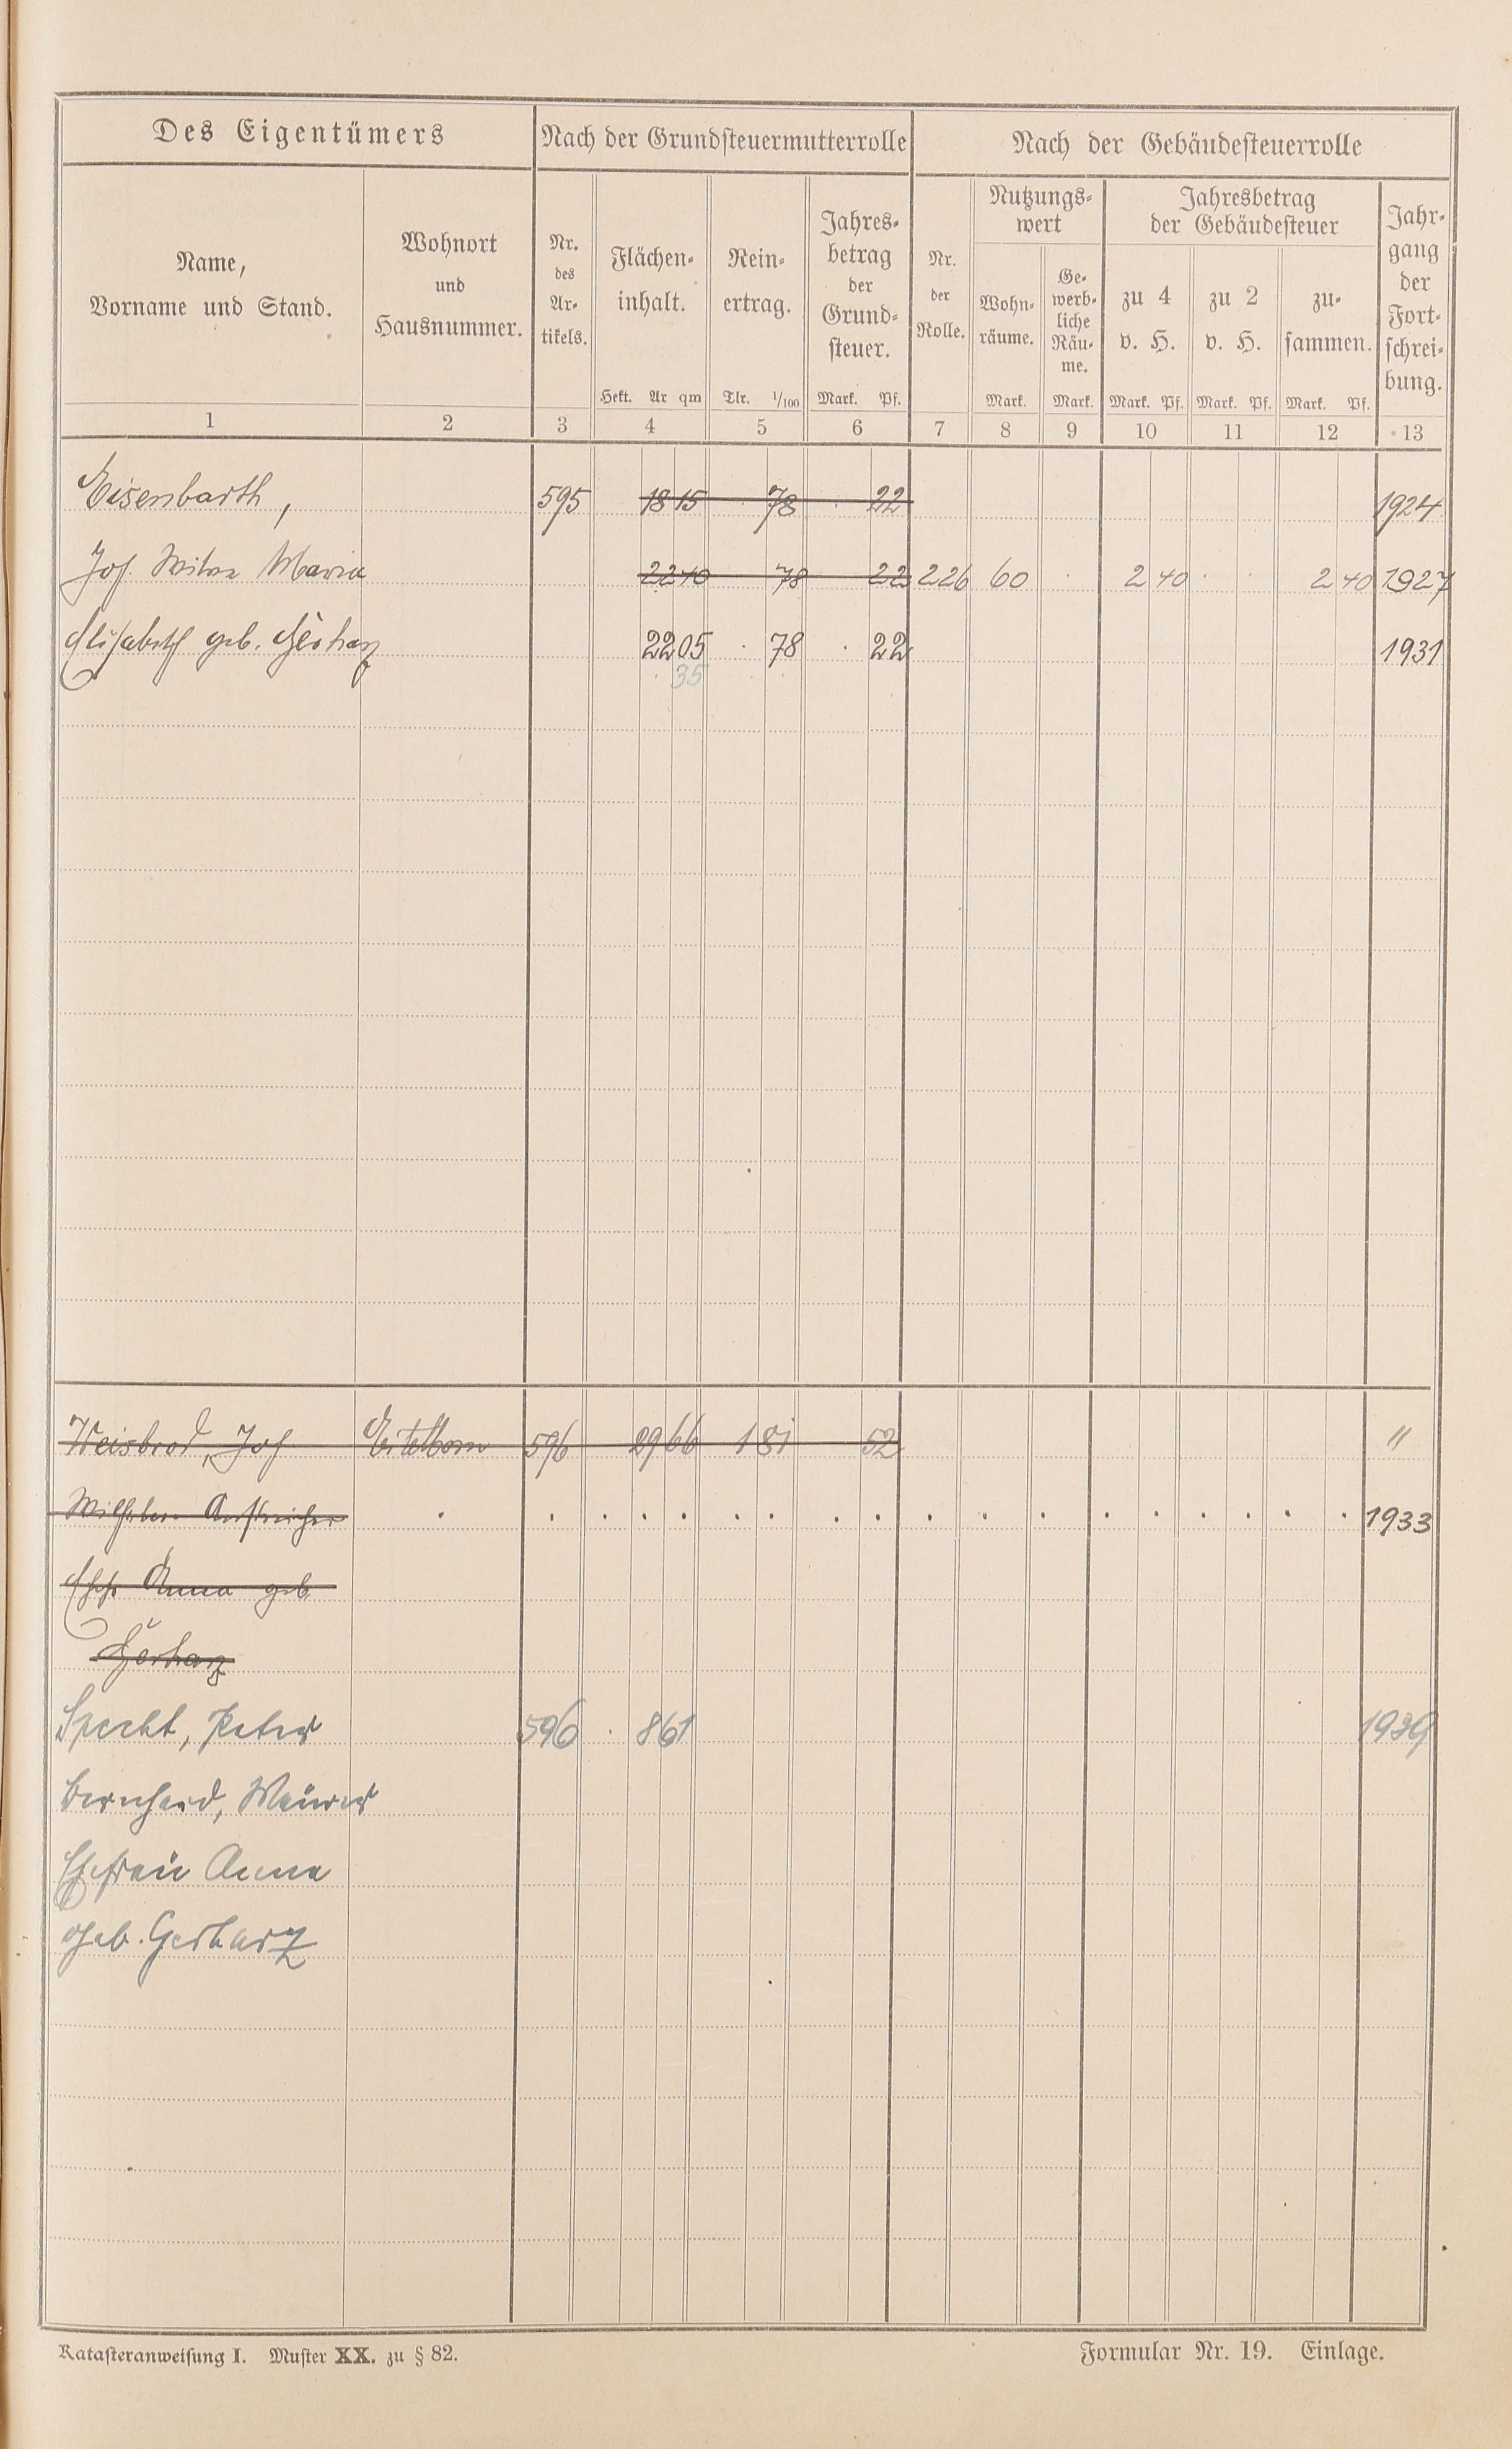 Des Eigentümers Nach der Grundsteuermutterrolle Nach der Gebäudesteuerrolle
Name,
Vorname und Stand.
Wohnort
und
Hausnummer.
Nr.
des
Ar-
tikels.
Flächen-
inhalt.
Hekt. Ar qm
Rein-
ertrag.
Tlr. 1/100
Jahres-
betrag
der
Grund-
steuer.
Mark. Pf.
Nr.
der
Rolle.
Nutzungs-
wert
Wohn-
räume.
Mark.
Ge-
werb-
liche
Räu-
me.
Mark.
Jahresbetrag
der Gebäudesteuer
zu 4
v. H.
Mark. Pf.
zu 2
v. H.
Mark. Pf.
zu-
sammen.
Mark. Pf.
Jahr-
gang
der
Fort-
schrei-
bung.
1 2 3 4 5 6 7 8 9 10 11 12 13
Eisenbarth, 595 18 15 78 22 1924
Jos. Witwe Maria 22 40 78 22 226 60 2 40 2 40 1927
Elisabeth geb. Gerharz 22 05 78 22 1931
35
Weisbrod, Jos Eitelborn 596 29 66 1 81 52 "
Wilhelm Anstreicher 1933
Ehefr Anna geb
Gerharz
Specht, Peter 596 8 61 1939
Bernhard, Maurer
Ehefrau Anna
geb. Gerharz
Katasteranweisung I. Muster XX. zu § 82. Formular Nr. 19. Einlage.